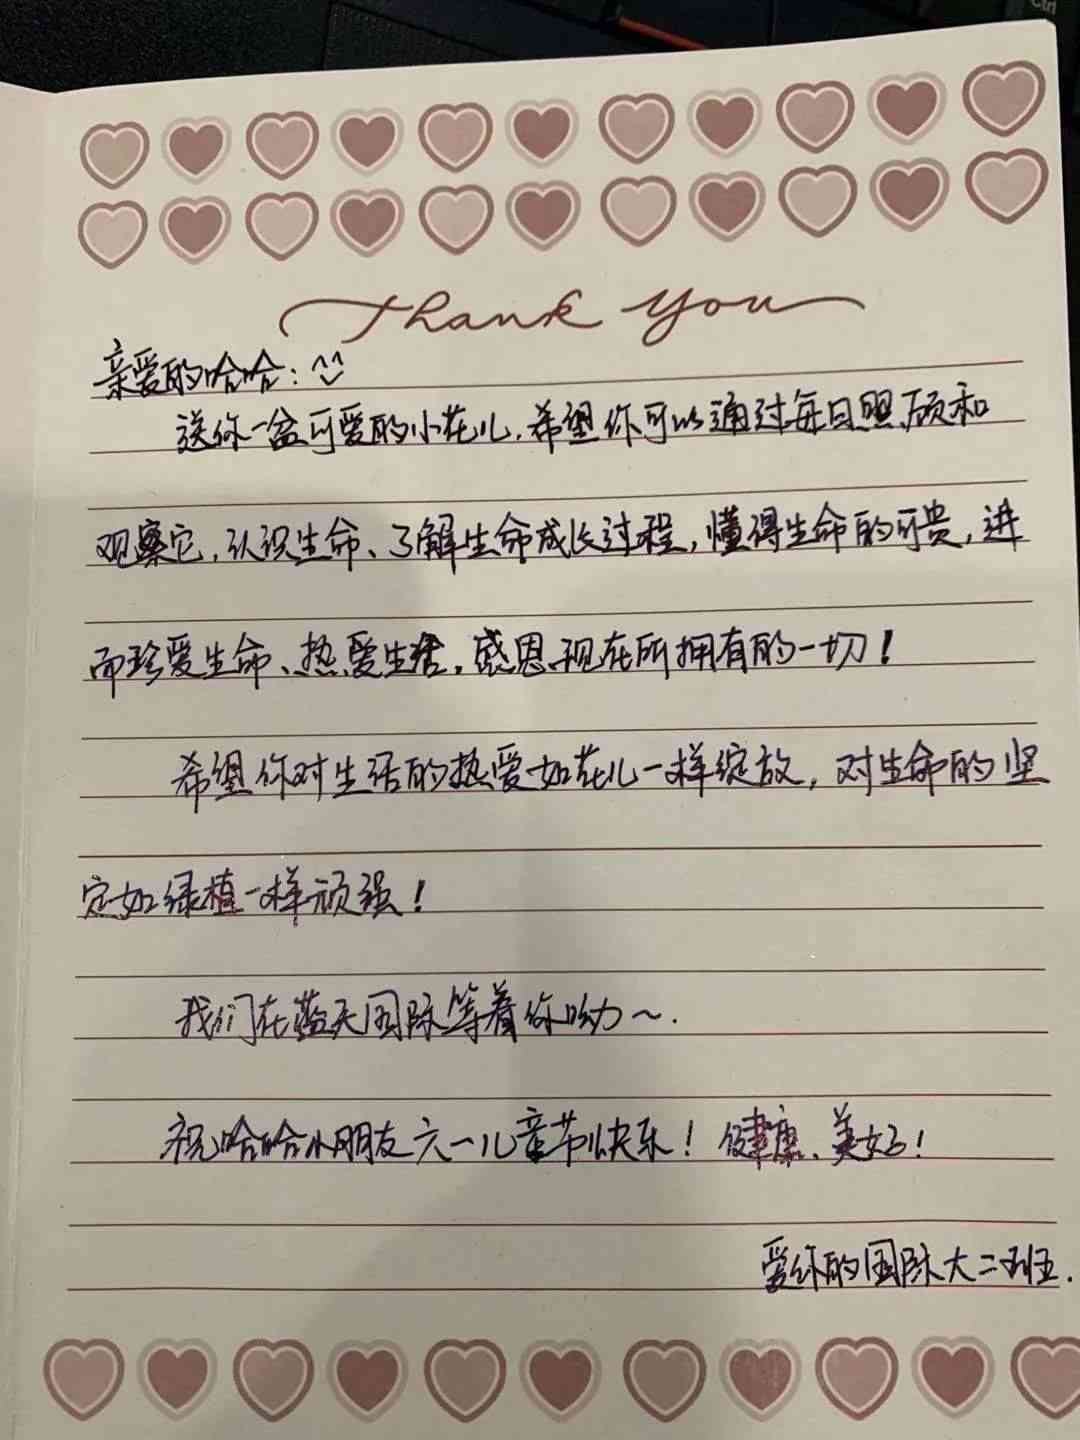 Ctrl
Thank you
亲爱的哈哈：
送你一盆可爱的小花儿，希望你可以通过每日照顾和
观察它，认识生命、了解生命成长过程，懂得生命的可贵，进
而珍爱生命、热爱生活，感恩现在所拥有的一切！
希望你对生活的热爱如花儿一样绽放，对生命的坚
定如绿植一样顽强！
我们在蓝天国际等着你呦～.
祝哈哈小朋友六一儿童节快乐！健康、美好！
爱你的国际大二班.